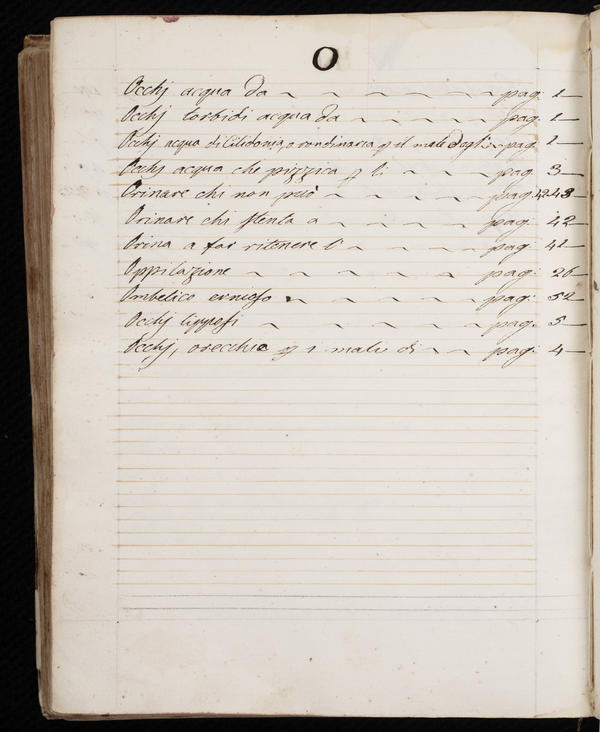 O
Occhj acqua da pag: 1
Occhj torbidi acqua da pag: 1
Occhj acqua di Cilidonia, o rondinaria p il male degli pag: 2
Occhj acqua che pizzica p li pag: 3
Orinare chi non può pag: 42 43
Orinare chi stenta a pag: 42
Orina a far ritenere l' pag: 41
Oppilazione pag: 26
Ombelico ernioso pag: 52
Occhj lipposi pag: 5
Occhj, orecchie p i mali di pag: 4